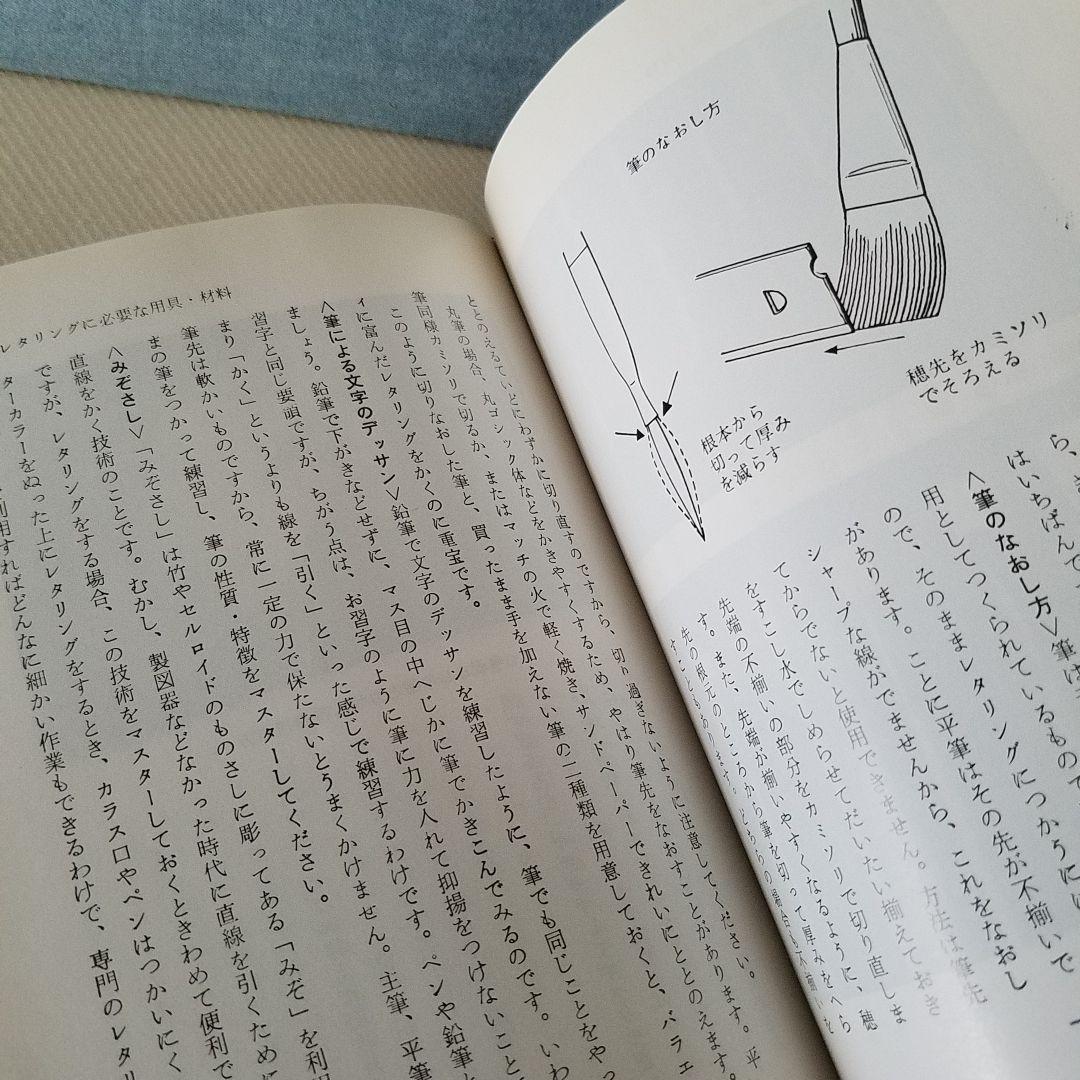 筆のなおし方
穂先をカミソリ
でそろえる
根本から
切って厚み
を減らす
ら、
はいちばんで
<筆のなおし方>筆は
用としてつくられているもので、
ので、そのままレタリングにつかうには
があります。ことに平筆はその先が不揃いで
シャープな線がでませんから、これをなおし
てからでないと使用できません。方法は筆先
をすこし水でしめらせてだいたい揃えておき
先端の不揃いの部分をカミソリで切り直しま
す。また、先端が揃いやすくなるように、穂
先の根元のところから筆を切って厚みをへら
すこともあります。どちらの場合も不揃いを
ととのえるていどにわずかに切り直すのですから、切り過ぎないように注意してください。
丸筆の場合、丸ゴシック体などをかきやすくするため、やはり筆先をなおすことがあります。平
筆同様カミソリで切るか、またはマッチの火で軽く焼き、サンドペーパーできれいにととのえます。
このように切りなおした筆と、買ったまま手を加えない筆の二種類を用意しておくと、バラエ
ィに富んだレタリングをかくのに重宝です。
<筆による文字のデッサン>鉛筆で文字のデッサンを練習したように、筆でも同じことをやっ
ましょう。鉛筆で下がきなどせずに、マス目の中へじかに筆でかきこんでみるのです。いわ
習字と同じ要領ですが、ちがう点は、お習字のように筆に力を入れて抑揚をつけないこと
まり「かく」というよりも線を「引く」といった感じで練習するわけです。ペンや鉛筆と
筆先は軟かいものですから、常に一定の力で保たないとうまくかけません。主筆、平筆
まの筆をつかって練習し、筆の性質・特徴をマスターしてください。
<みぞさし>「みぞさし」は竹やセルロイドのものさしに彫ってある「みぞ」を利用
直線をかく技術のことです。むかし、製図器などなかった時代に直線を引くために
ですが、レタリングをする場合、この技術をマスターしておくときわめて便利で
ターカラーをぬった上にレタリングをするとき、カラス口やペンはつかいにく
利用すればどんなに細かい作業もできるわけで、専門のレタリ
レタリングに必要な用具・材料